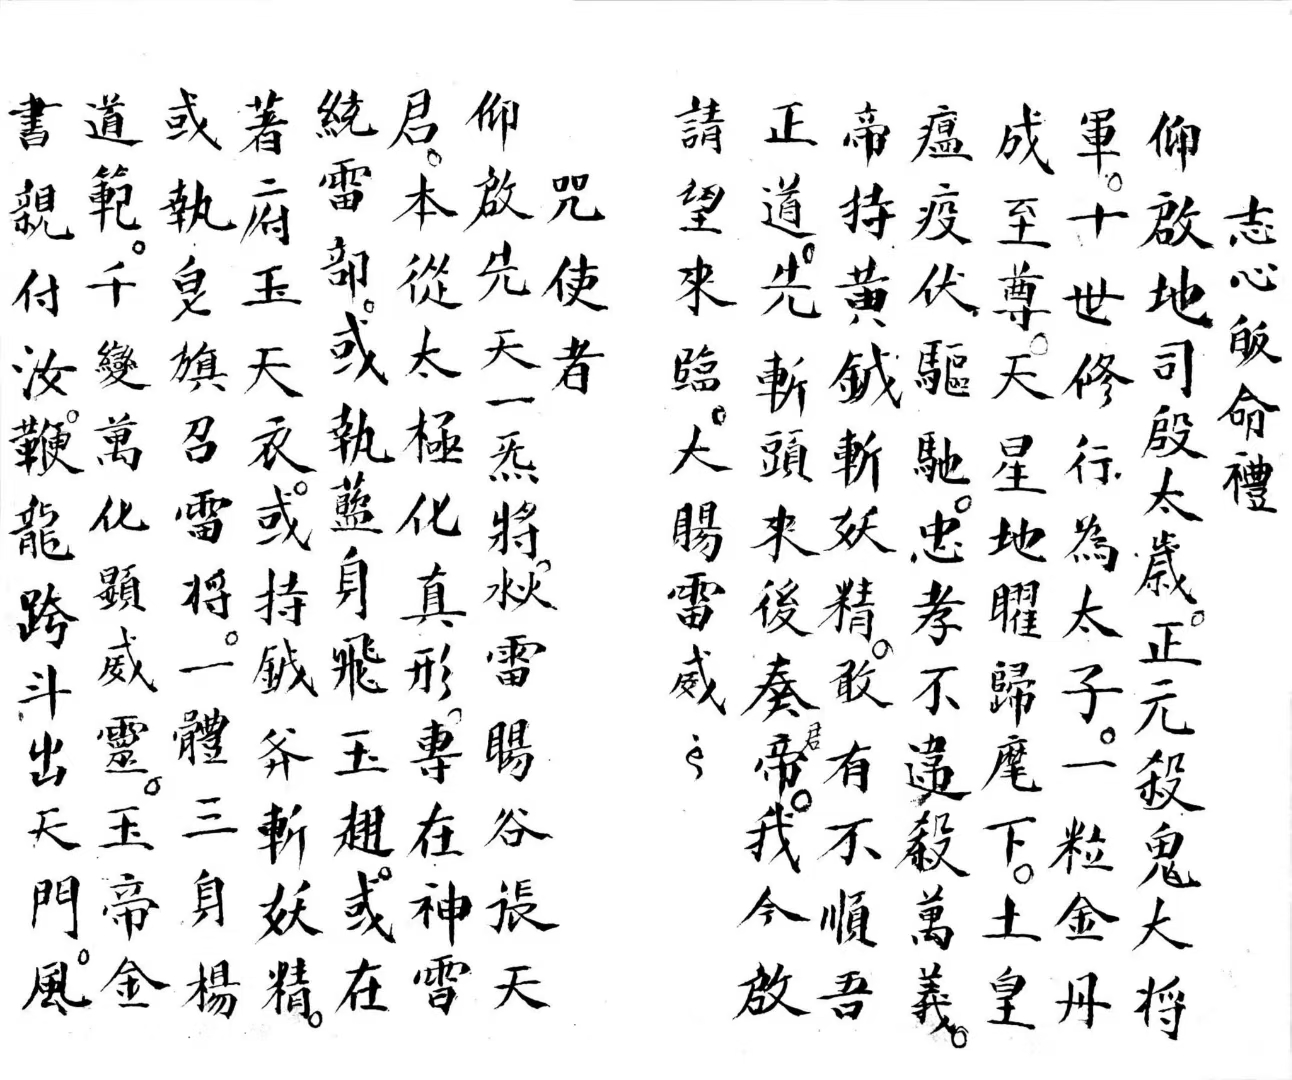 志心皈命禮
仰啟地司殷太歲。正元殺鬼大将
軍。十世修行為太子。一粒金丹
成至尊。天星地曜歸麾下。土皇
瘟疫伏驅馳。忠孝不違殺萬義。
帝持黃鉞斬妖精。敢有不順吾
正道。先斬頭來後奏帝君。我今啟
請望來臨。大賜雷威
咒使者
仰啟先天一炁將。炏雷賜谷張天
君。本從太極化真形。專在神雷
統雷部。或執藍身飛玉翅。或在
著二府玉天衣。或持鉞斧斬妖精。
或執皂旗召雷将。一體三身楊
道範。千變萬化顯威靈。玉帝金
書親付汝。鞭龍跨斗出天門。風